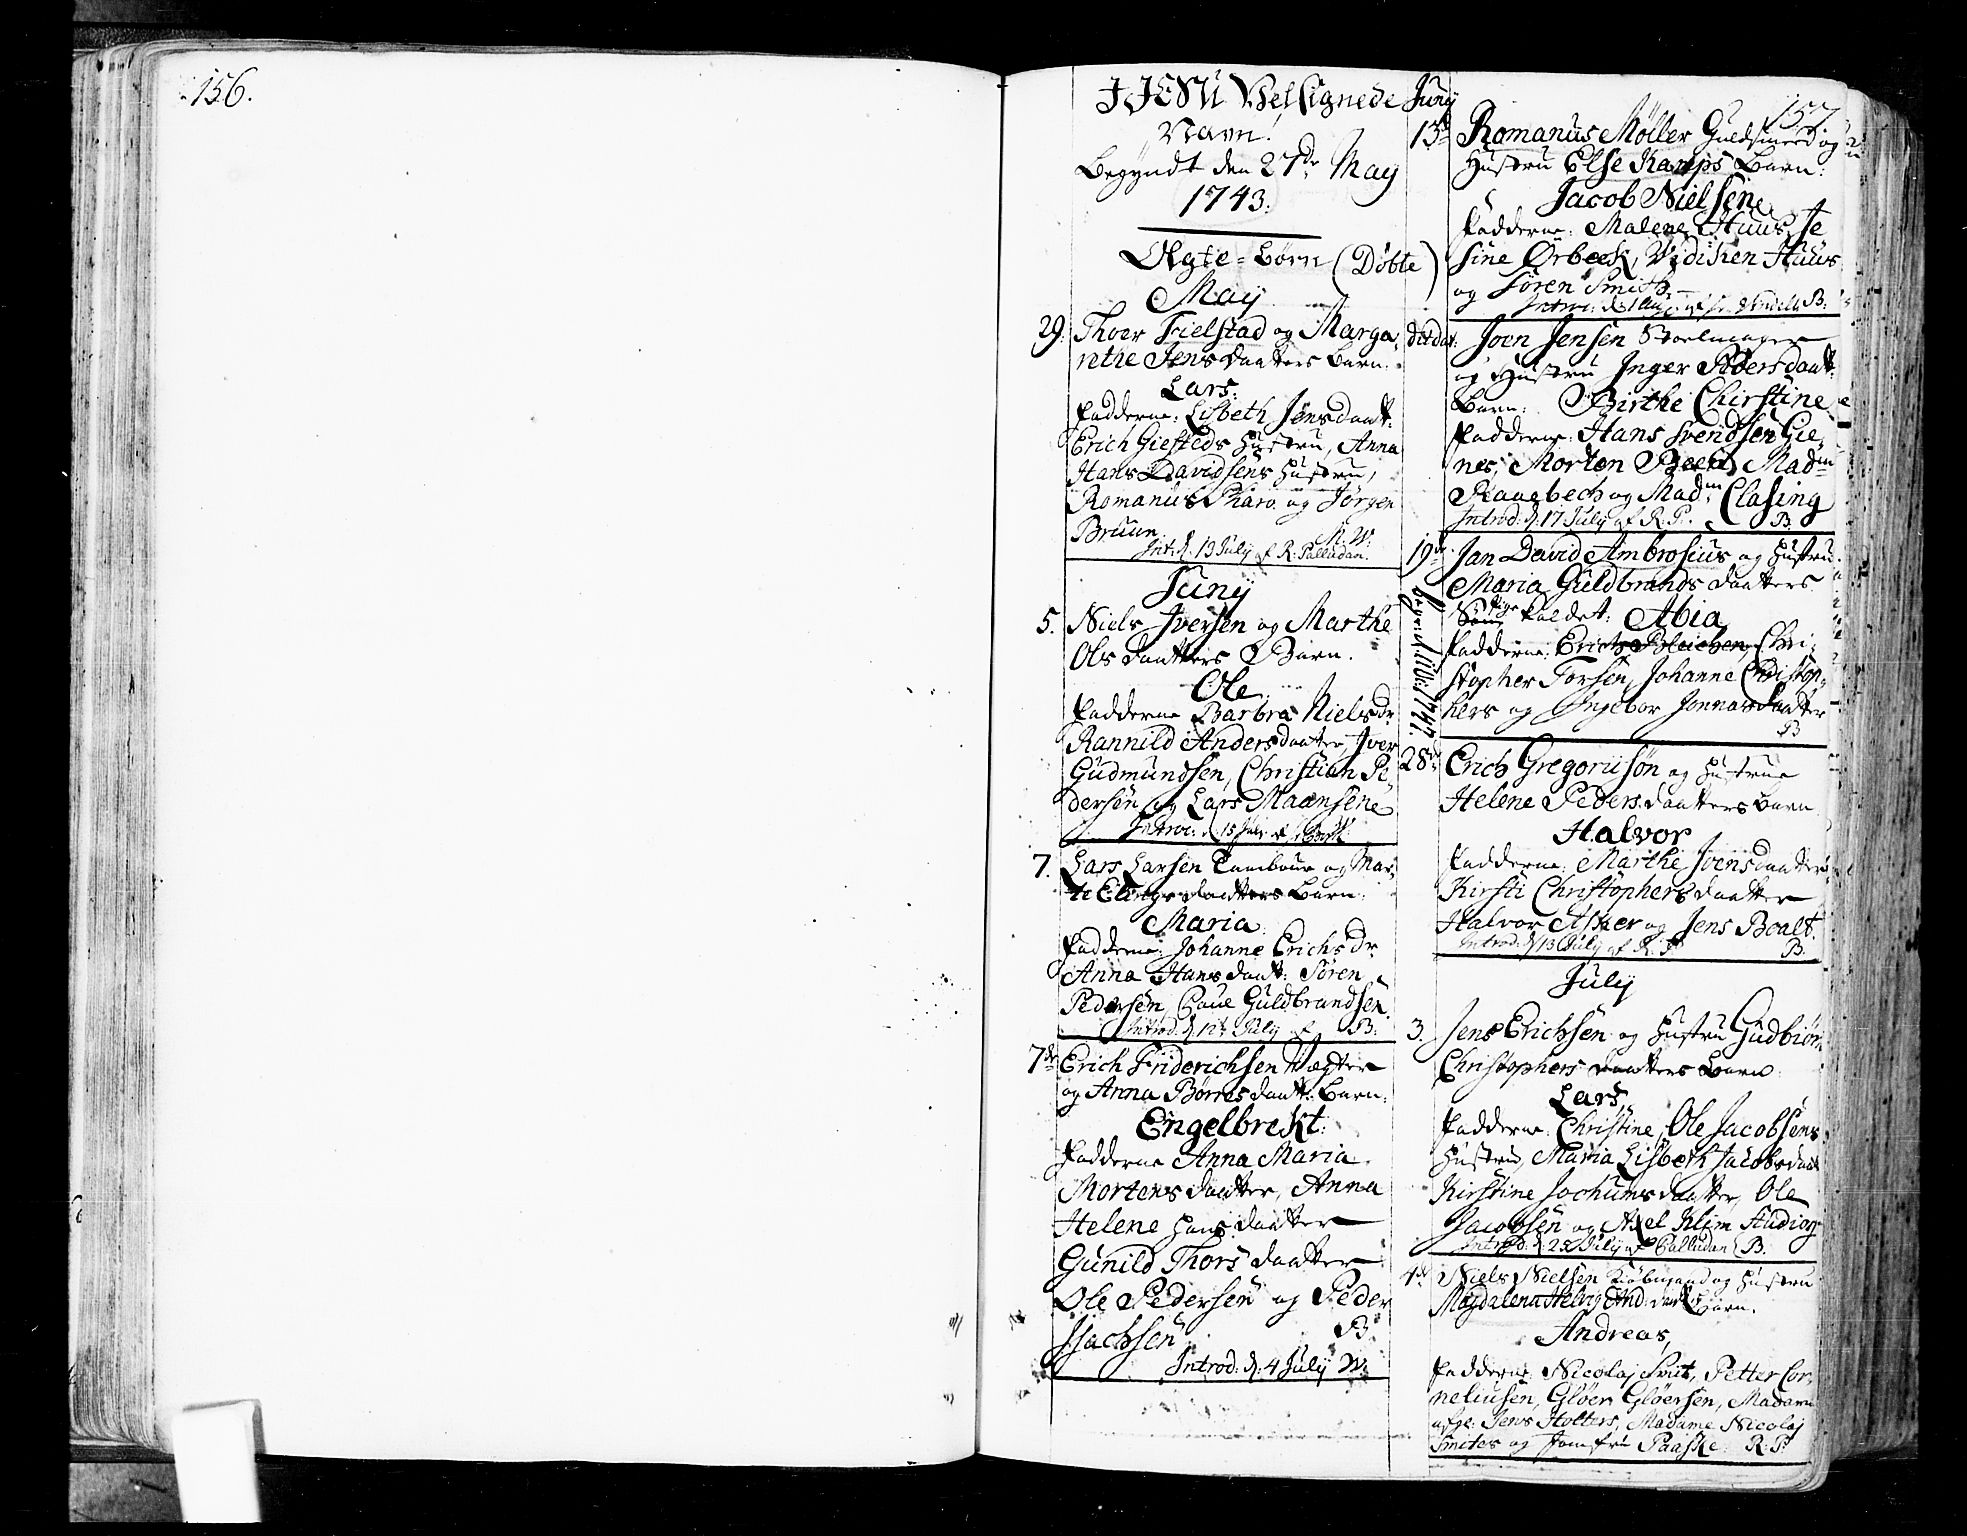 156.
I JESU Velsignede
Navn!
Begÿndt den 27de Maÿ
1743.
Ægte-børn (Døbte)
Maÿ
29. Thoer Fielstad og Marga-
rethe Jens daatters barn.
Lars.
Fadderne: Lisbeth Jens daatt:
Erich Giesteds Hustru, Anna
Hans Davidsens Hustru,
Romanus Pharo og Jørgen
Bruun. M. W:
Int: d. 19 Julÿ af R: Palludan.
Junÿ
5. Niels Iversen og Marthe
Ols daatters Barn.
Ole
Fadderne Barbra Niels dr
Rannild Anders daatter, Iver
Gudmundsen, Christian Pe-
dersøn og Lars Maansens
Introd: d. 15 Julÿ af
7. Lars Larsen Tambour og Mar-
te Elings daatters Barn:
Maria.
Fadderne: Johanne Erichs Dr
Anna Hans daat: Søren
Pedersen, Poul Guldbrandsen.
Introd: d. 12te Julÿ af B:
7de Erich Friderichsen Vægter
og Anna Børres daatt: Barn:
Engelbrekt:
Fadderne Anna Maria
Mortens daatter, Anna
Helene Hans daatter
Gunild Thors daatter
Ole Pedersen og Peder
Isachsen B.
Introd: d: 4 Julÿ W:
157
Junÿ
13de Romanus Møller Guldsmed og
Hustru Else Kamps Barn:
Jacob Nielsen
Fadderne: Malene Huus, Je
sine Ørbeck, Vidiken Huus
og Søren Smith
Introd: d. 1 Aug: af B:
dit dat: Joen Jensen Stoelmager
og Hustru Inger Peders daatt:
Barn: Birthe Chirstine
Fadderne: Hans Svendsen Gie-
nes, Morten Beck, Madm
Raagbech og Madm Clasing
Introd: d. 17 Julÿ af R: P:. B.
19de Jan David Ambrosius og Hustru
Maria Guldbrands daatters
Søn Pige kaldet: Abia
Fadderne: Erich Bleichen, Chri-
stopher Torsen, Johanne Christop-
hers og Ingebor Jonnas daatter
B
28de Erich Gregoriisøn og Hustrue
Helene Peders daatters barn
Halvor
Fadderne: Marthe Joens daatter
Kirsti Christophers daatter
Halvor Asker og Jens Boalt.
Introd: d. 13 Julÿ af R: P: B.
Julÿ
3. Jens Erichsen og Hustru Gudbiør
Christophers daatters Barn
Lars
Fadderne: Christine, Ole Jacobsens
Hustru, Maria Lisbeth Jacobs daatt
Kirstine Jochums daatter, Ole
Jacobsen og Axel Klim Studios
Introd: d: 25 Julÿ af Palludan B.
4de Niels Nielsen Kiøbmand og Hustru
Magdalena Helvig And: daatters Barn.
Andreas,
Fadderne: Nicolaj Smit, Petter Cor-
neliusen, Gløer Gløersen, Madame
afge: Jens Holters, Madame Nicolaj
Smites og Jomfru Paaske. R: P: